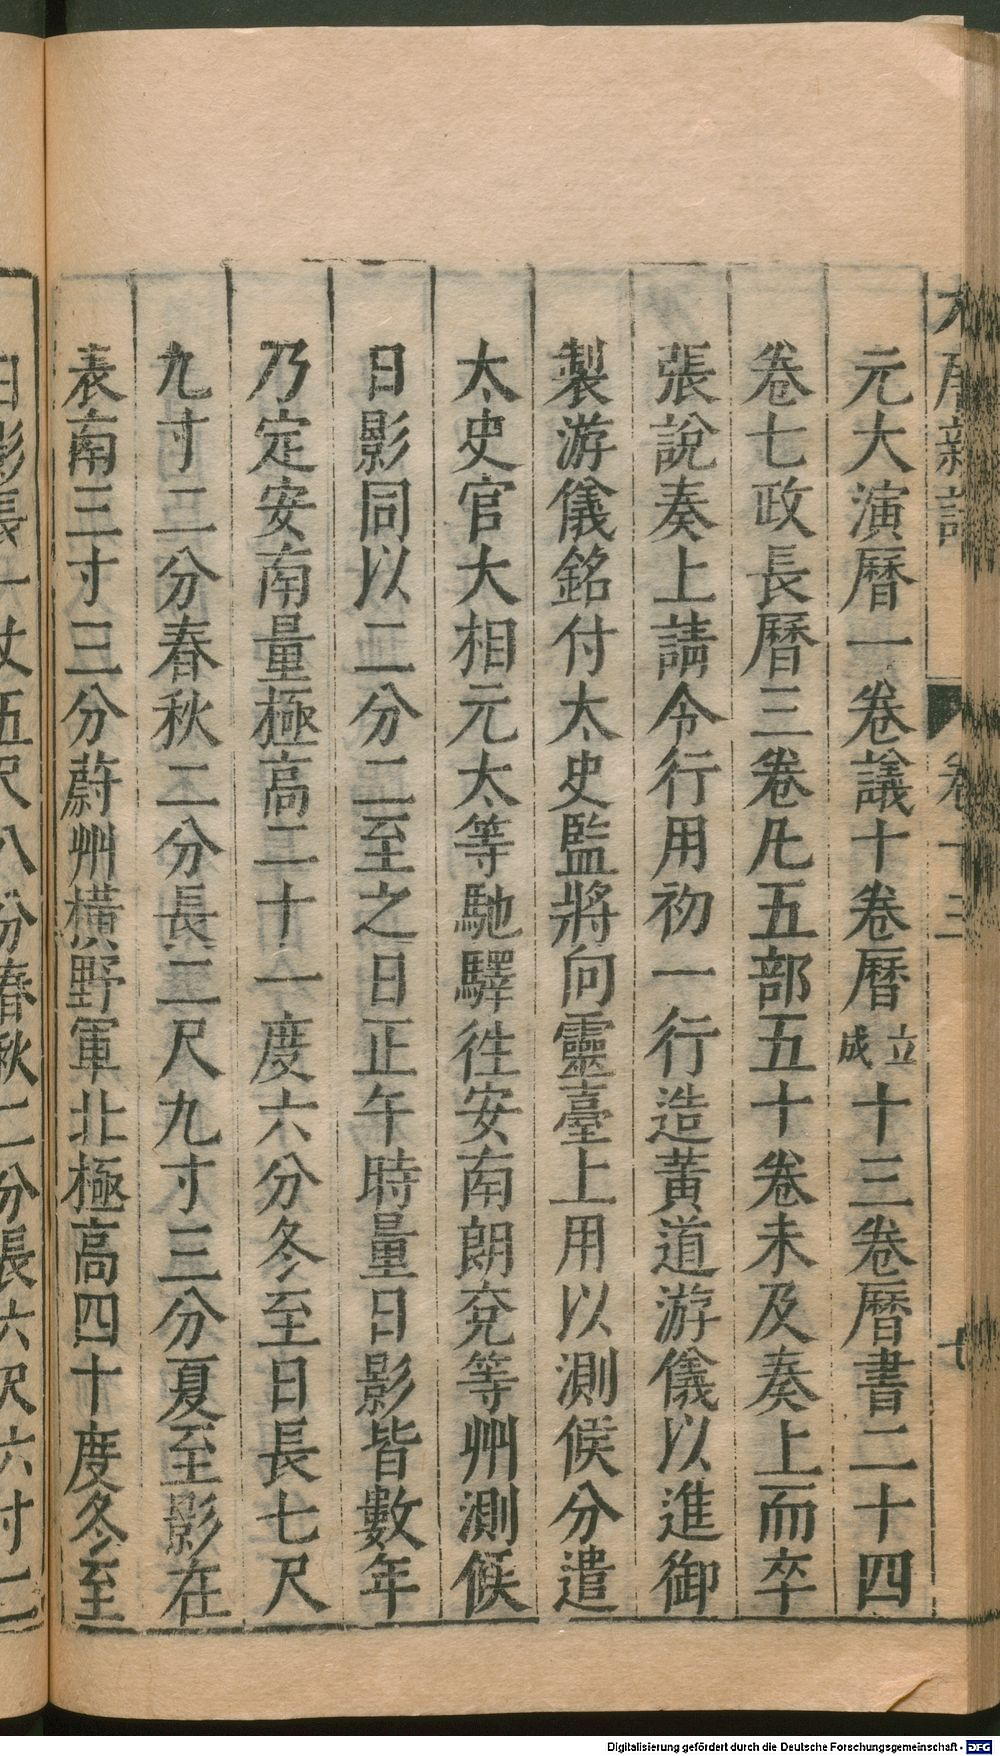 大唐新語 卷十三 七
元大演曆一卷議十卷曆立成十三卷曆書二十四
卷七政長曆三卷凡五部五十卷未及奏上而卒
張說奏上請令行用初一行造黃道游儀以進御
製游儀銘付太史監將向靈臺上用以測候分遣
太史官大相元太等馳驛徃安南朗兗等州測候
日影同以二分二至之日正午時量日影皆數年
乃定安南量極高二十一度六分冬至日長七尺
九寸二分春秋二分長二尺九寸三分夏至影在
表南三寸三分蔚州橫野軍北極高四十度冬至
日影長一丈五尺八分春秋二分長六尺六寸二
Digitalisierung gefördert durch die Deutsche Forschungsgemeinschaft - DFG